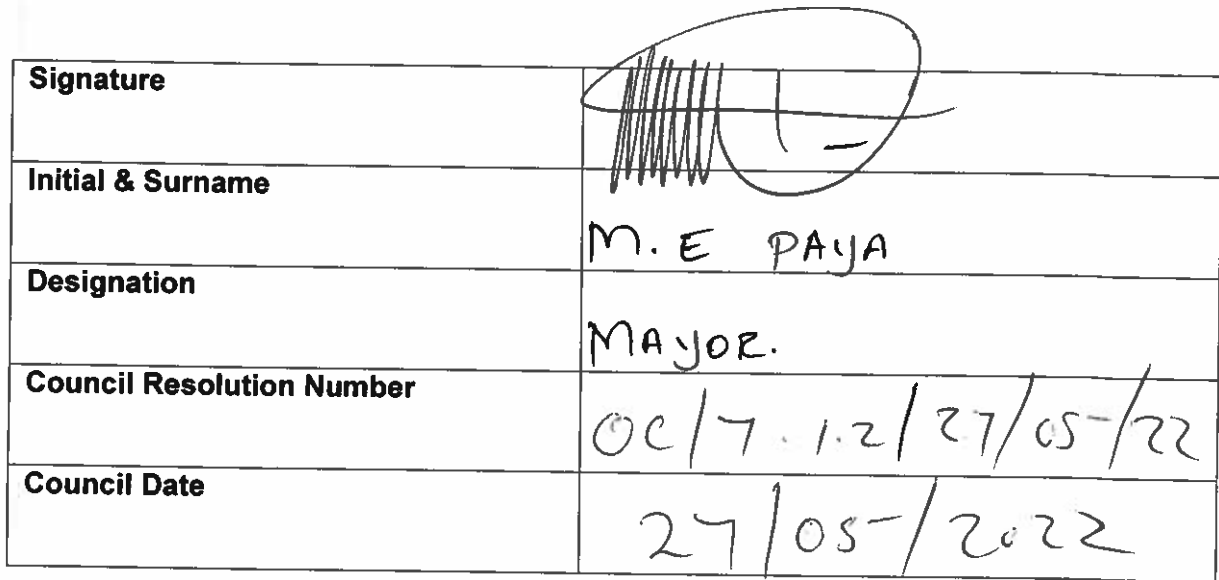 Signature
Initial & Surname
M. E PAYA
Designation
MAYOR.
Council Resolution Number
OC/7.1.2/27/05/22
Council Date
27/05/2022